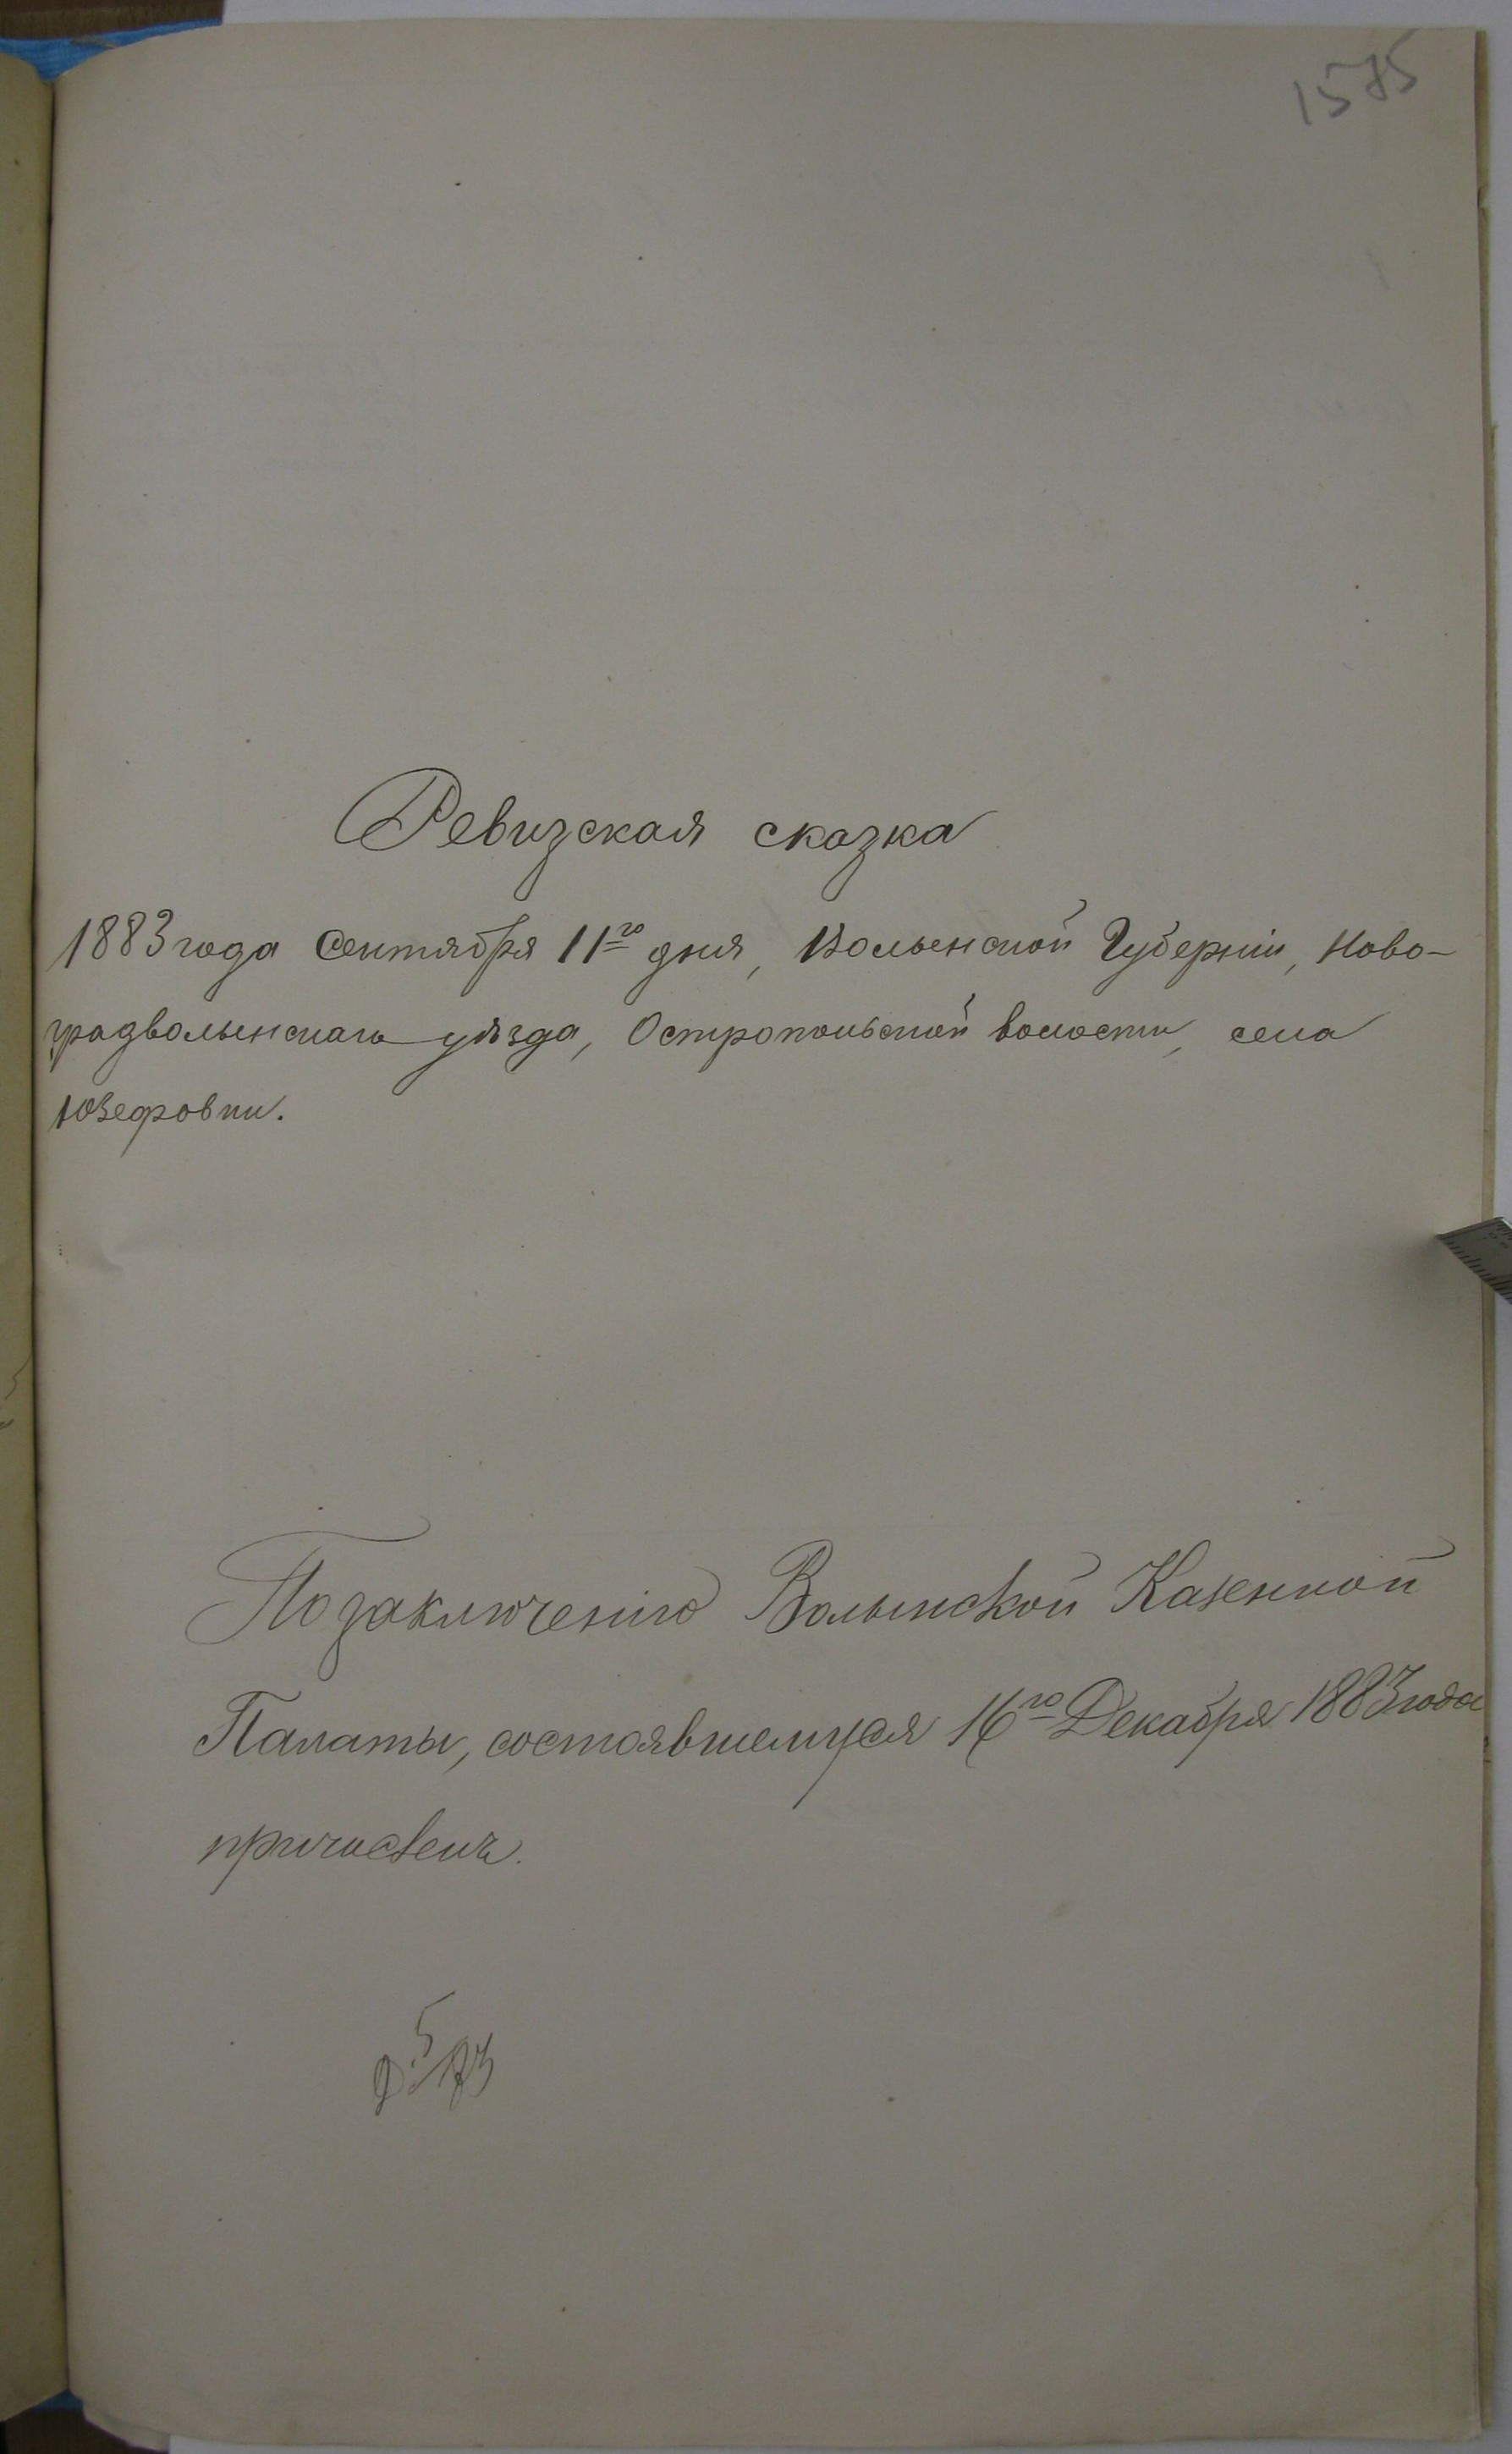 1575
Ревизская сказка
1883 года Сентября 11го дня, Волынской Губерніи, Ново-
градволынскаго уѣзда, Остропольской волости, села
Юзефовки.
По заключенію Волынской Казенной
Палаты, состоявшемуся 16го Декабря 1883 года
причислен.